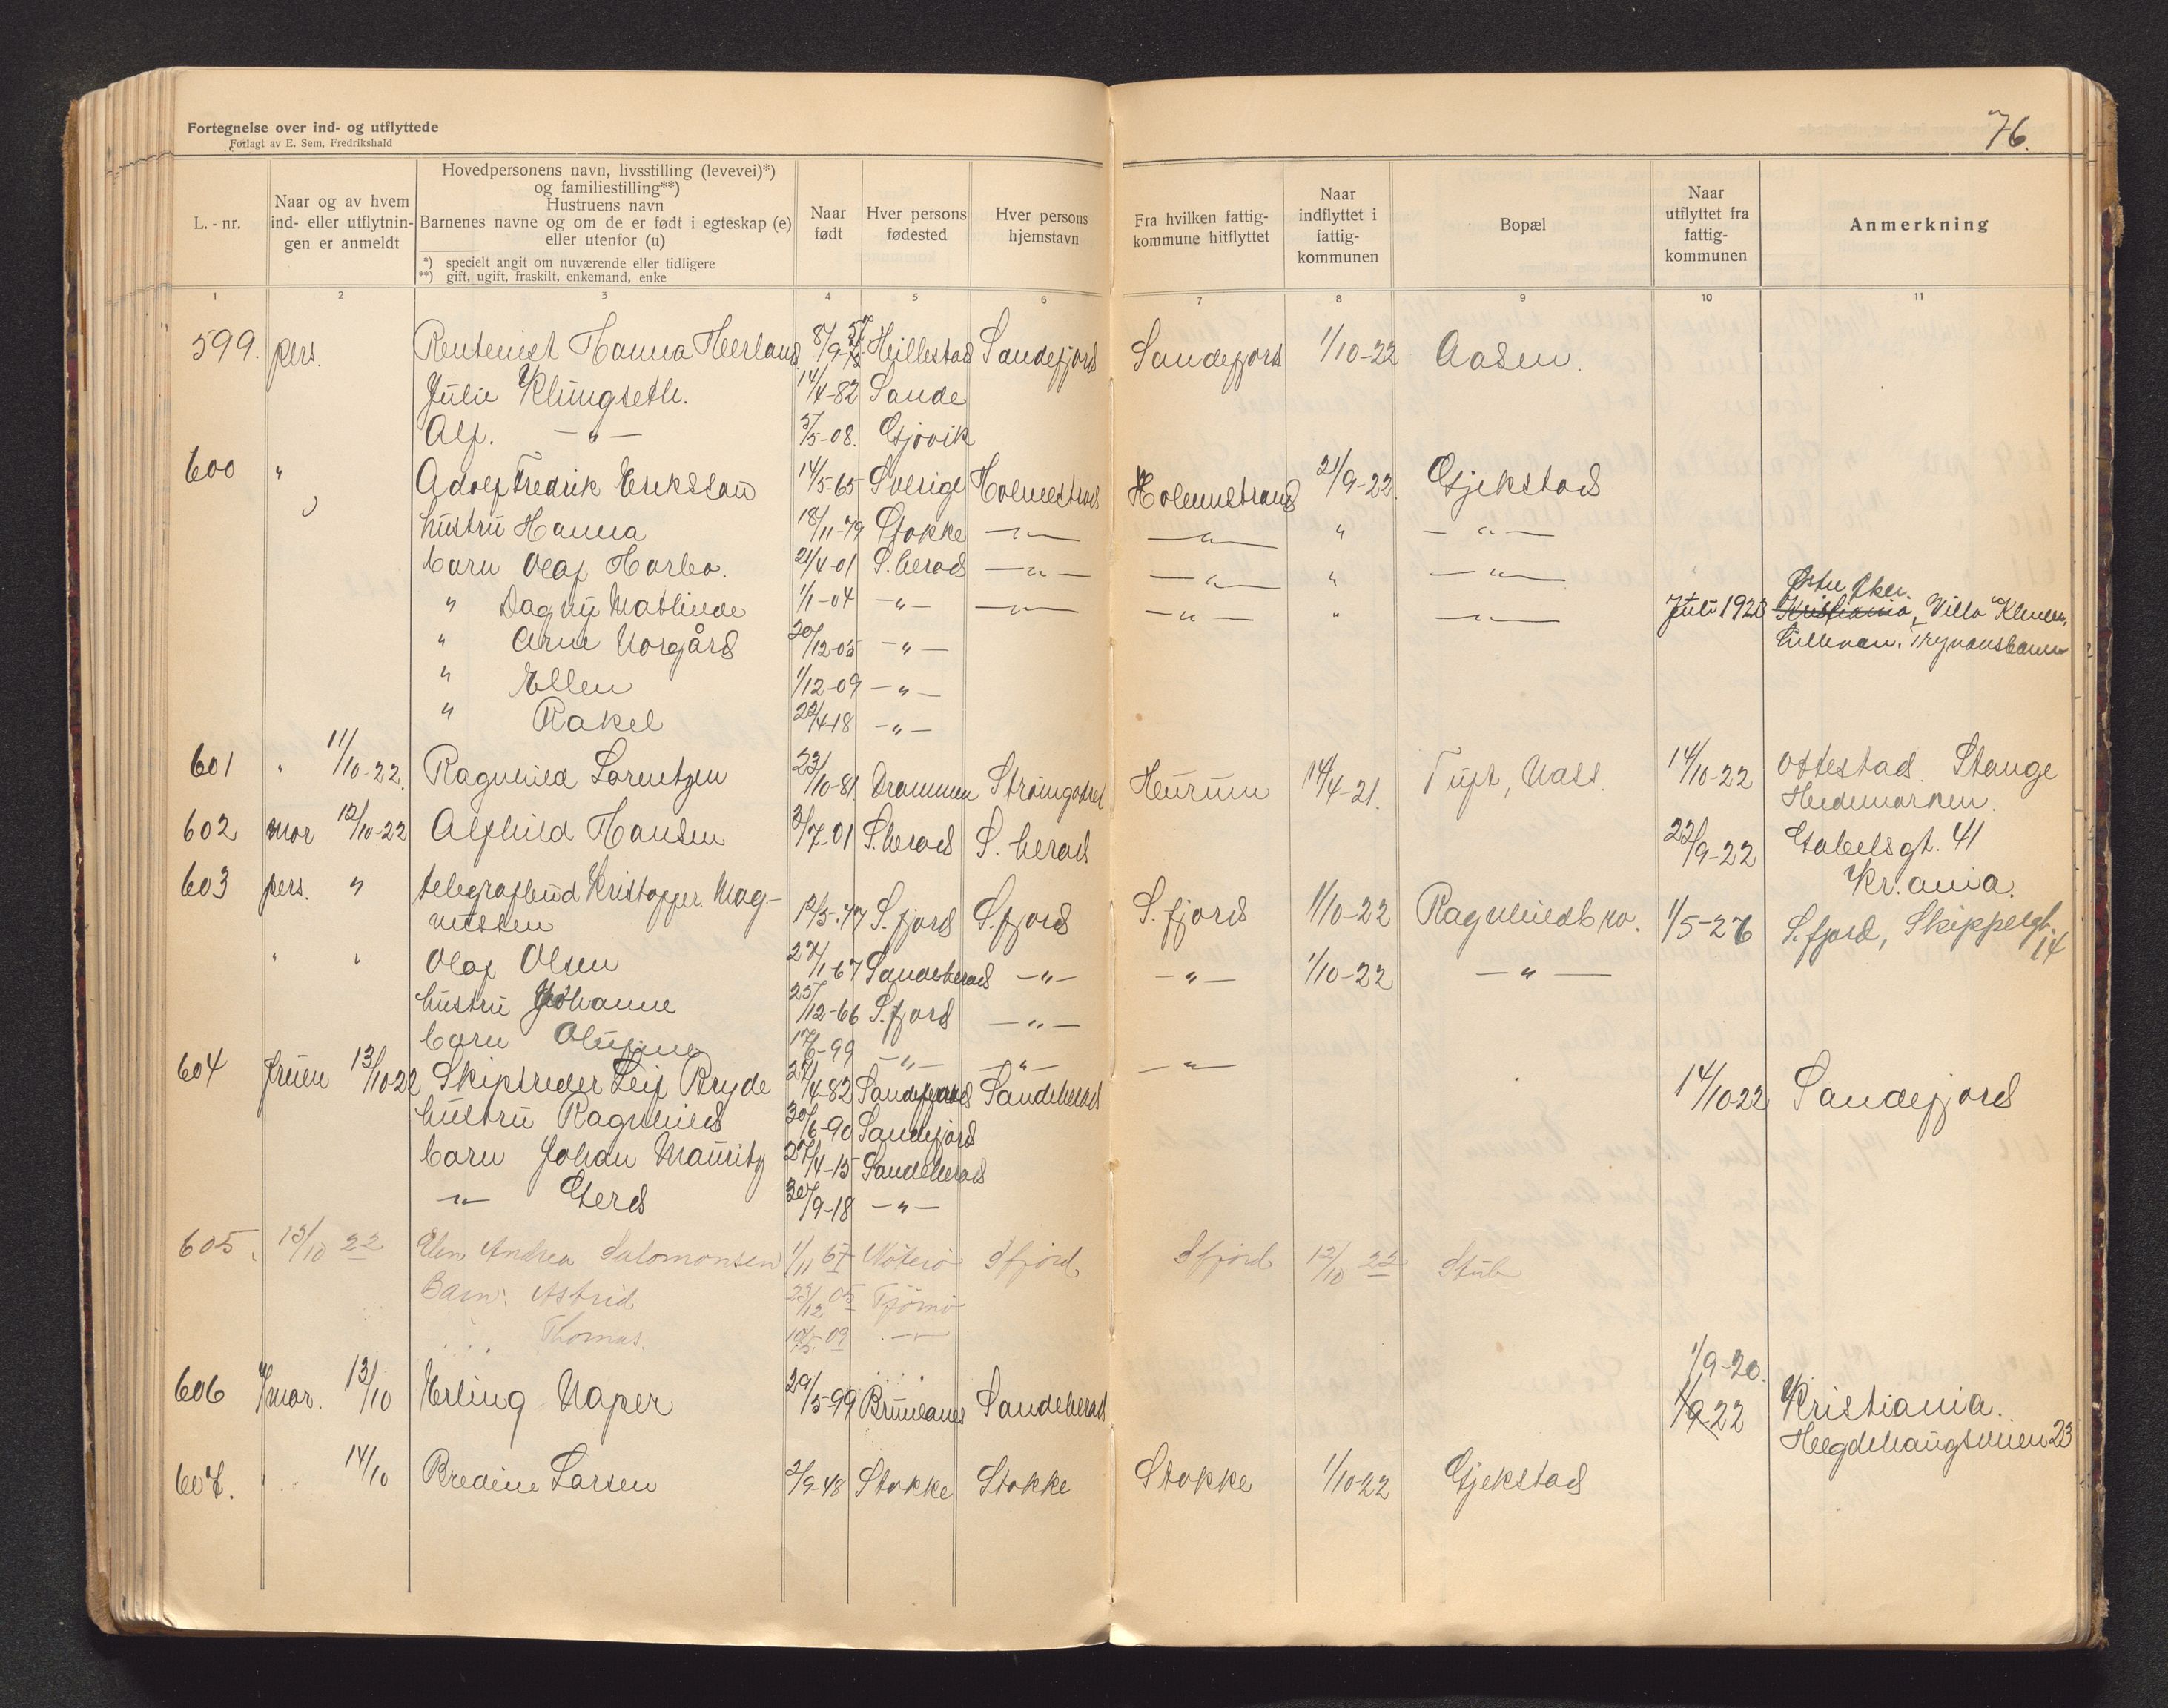 Fortegnelse over ind- og utflyttede
Forlagt av E. Sem, Fredrikshald
76.
L.-nr.
Naar og av hvem ind- eller utflytnin- gen er anmeldt
Hovedpersonens navn, livsstilling (levevei)*)
og familiestilling**)
Hustruens navn
Barnenes navne og om de er født i egteskap (e)
eller utenfor (u)
*) specielt angit om nuværende eller tidligere
**) gift, ugift, fraskilt, enkemand, enke
Naar født
Hver persons fødested
Hver persons hjemstavn
Fra hvilken fattig- kommune hitflyttet
Naar indflyttet i fattig- kommunen
Bopæl
Naar utflyttet fra fattig- kommunen
Anmerkning
1 2 3 4 5 6 7 8 9 10 11
599. pers. Rentenist Hanna Herland 8/9- Hillestad Sandefjord Sandefjord 1/10-22 Aasen.
Julie Klungseth. 14/4-82 Sande
Alf. —"— 5/5-08. Gjøvik
600 " Adolf Fredrik Eriksson 14/5-65 Sverige Holmestrand Holmestrand 21/9-22. Gjekstad
hustru Hanna 18/11-79 Stokke —"— —"— " —"—
barn Olaf Harbo. 21/4-01 S.herad —"— —"— " —"—
" Dagny Mathinde 1/1-04 —"— —"— —"— " —"— Juli 1923 Østre Aker. Kristiania, Villa
" Arne Norgård 20/12-05 —"— Lillevan. Tryvansbanen
" Ellen 1/12-09 —"—
" Rakel 22/4-18 —"—
601 " 11/10-22. Ragnhild Lorentzen 23/10-81. Drammen Strømgodset Hurum 14/4-21. Tuft, Nass. 14/10-22 Ottestad. Stange
Hedemarken.
602 mor 12/10-22 Alfhild Hansen 3/7-01 S.herad S. herad 22/9-22 Gabelsgt. 41
Kr.ania.
603 pers. " telegrafbud Kristoffer Mag-
nussen 12/5-77 S.fjord S.fjord S.fjord 1/10-22 Ragnhildsro. 1/5-26 S.fjord, Skippergt.
14
" " Olaf Olsen 27/1-67 Sandeherad —"— —"— 1/10-22 —"—
hustru Johanne 25/12-66 S.fjord —"—
barn Olufine 17/6-99 —"— —"— —"—
604 fruen 13/10-22 Skipsreder Leif Bryde 27/4-82 Sandefjord Sandeherad 14/10-22 Sandefjord
hustru Ragnhild 30/6-90 Sandefjord
barn Johan Mauritz 27/4-15 Sandeherad
—"— Gerd 30/9-18 —"—
605. 13/10 22 Elen Andrea Salomonsen 1/11 67 Nøterø Sfjord Sfjord 12/10 22 Stub
Barn: Astrid 23/12 05 Tjømø
" Thomas. 10/5 09 —"—
606 mor. 13/10 Erling Naper 29/5-99 Brunlanes Sandeherad 1/9-20.
1/9-22 Kristiania.
Hegdehaugsveien 23
607. " 14/10 Bredine Larsen 2/9-48 Stokke Stokke Stokke 1/10-22 Gjekstad